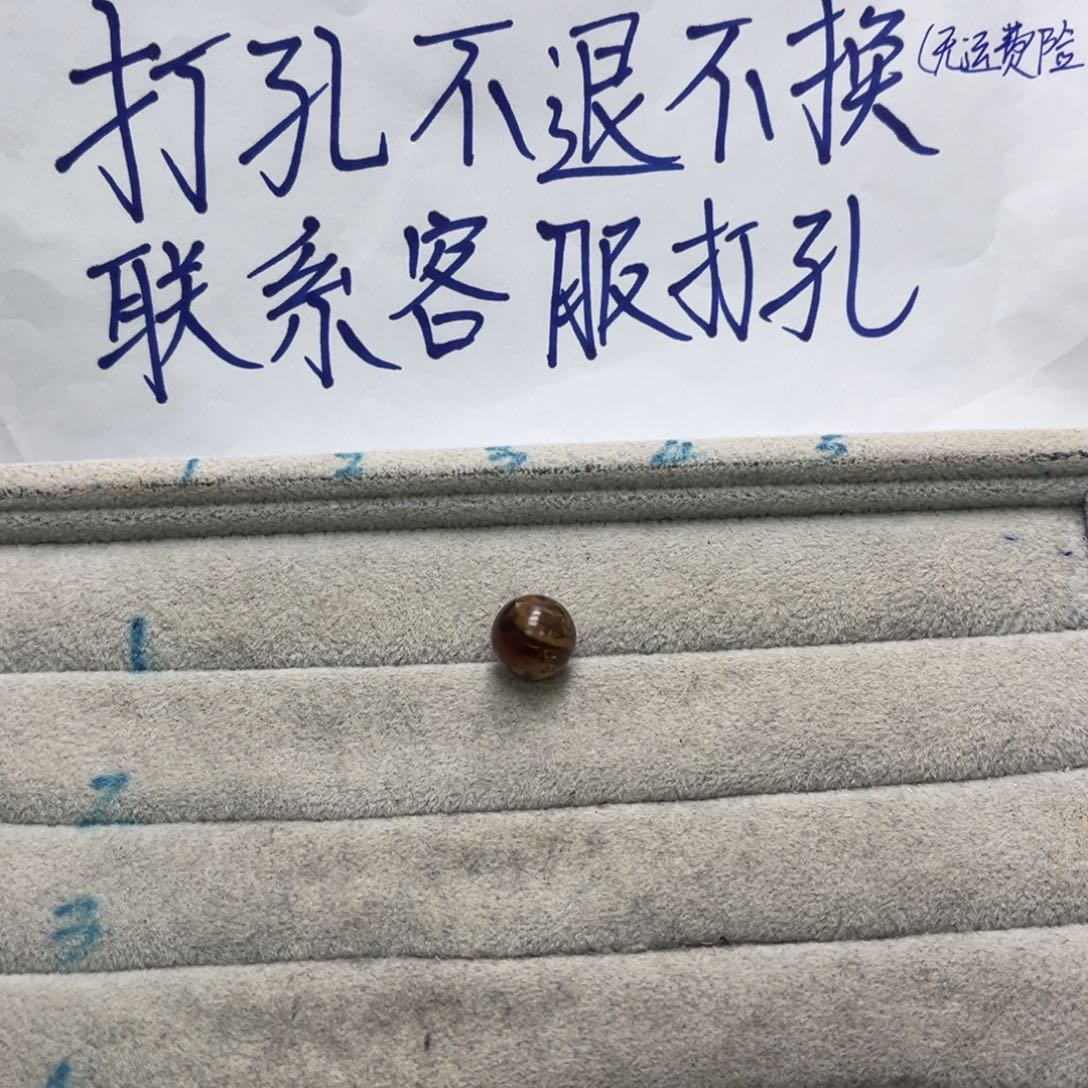 打孔不退不换(无运费险
联系客服打孔
1 2 3 4 5
1
2
3